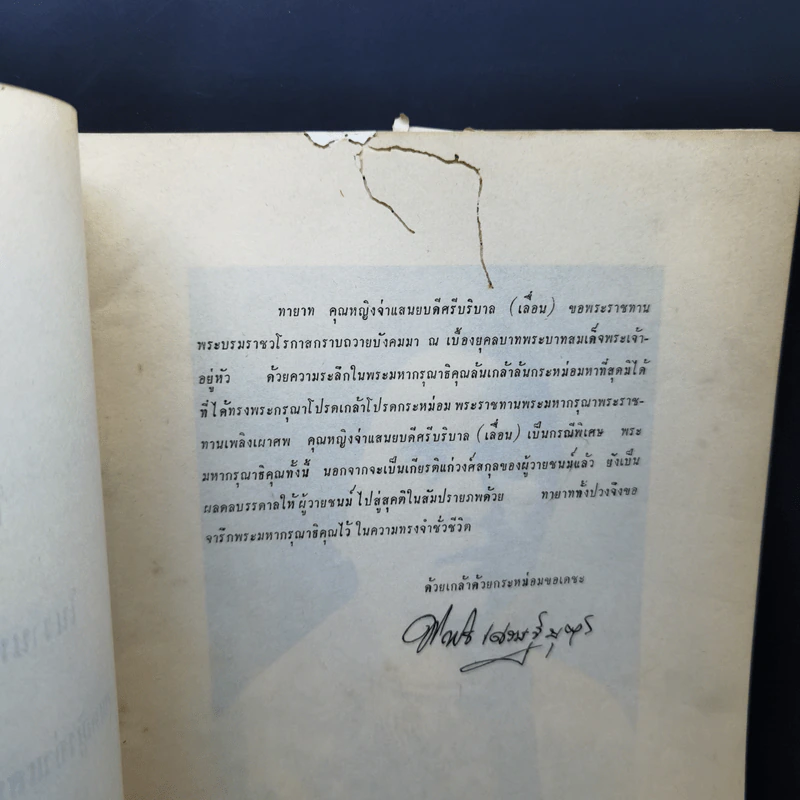 ทายาท คุณหญิงจ่าแสนยบดีศรีบริบาล (เลื่อน) ขอพระราชทาน
พระบรมราชวโรกาสกราบถวายบังคมมา ณ เบื้องยุคลบาทพระบาทสมเด็จพระเจ้า-
อยู่หัว ด้วยความระลึกในพระมหากรุณาธิคุณล้นเกล้าล้นกระหม่อมหาที่สุดมิได้
ที่ได้ทรงพระกรุณาโปรดเกล้าโปรดกระหม่อม พระราชทานพระมหากรุณาพระราช-
ทานเพลิงเผาศพ คุณหญิงจ่าแสนยบดีศรีบริบาล (เลื่อน) เป็นกรณีพิเศษ พระ
มหากรุณาธิคุณทั้งนี้ นอกจากจะเป็นเกียรติแก่วงศ์สกุลของผู้วายชนม์แล้ว ยังเป็น
ผลดลบรรดาลให้ผู้วายชนม์ ไปสู่สุคติในสัมปรายภพด้วย ทายาททั้งปวงจึงขอ
จารึกพระมหากรุณาธิคุณไว้ ในความทรงจำชั่วชีวิต
ด้วยเกล้าด้วยกระหม่อมขอเดชะ